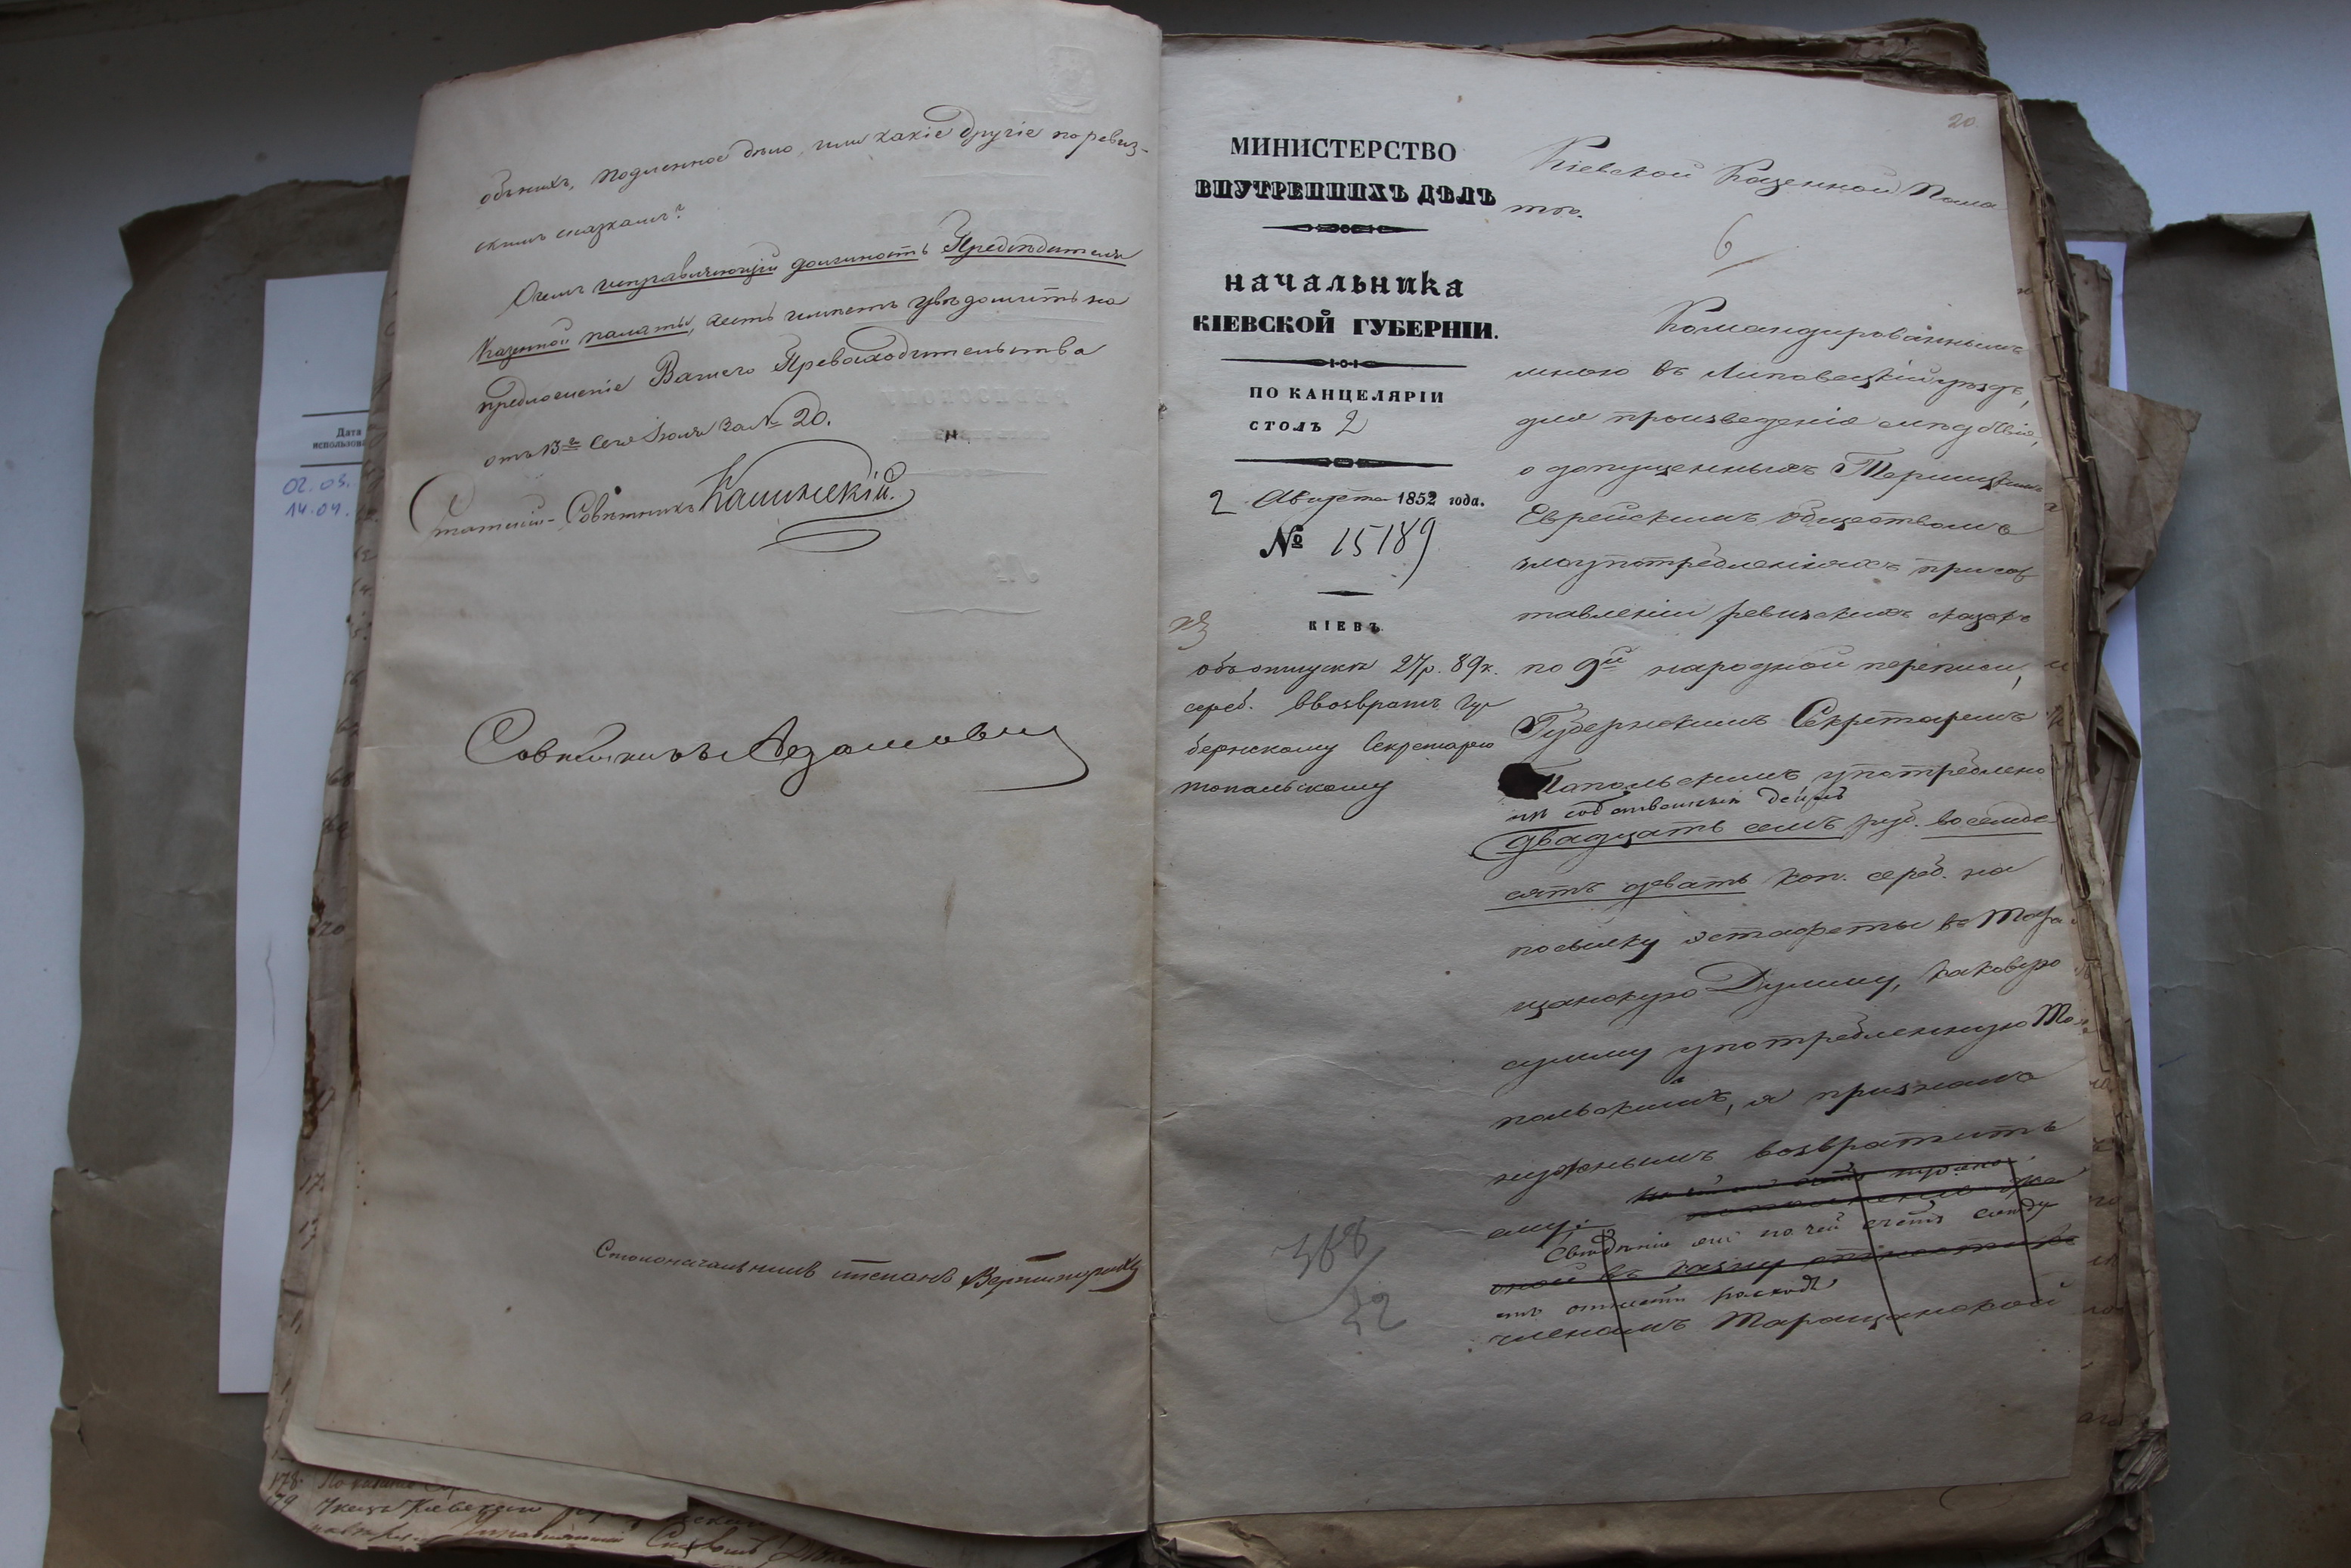 объ нихъ, подлинное дѣло, или какіе другіе по ревиз-
скимъ сказкамъ?
О чемъ исправляющій должность Предсѣдателя
Казенной палаты, честь имѣетъ увѣдомить на
предложеніе Вашего Превосходительства
отъ 13го сего Іюля за № 20.
Статскій Совѣтникъ Калинскій.
Совѣтникъ
Столоначальникъ
20.
МИНИСТЕРСТВО
ВНУТРЕННИХЪ ДѢЛЪ
НАЧАЛЬНИКА
КІЕВСКОЙ ГУБЕРНІИ.
ПО КАНЦЕЛЯРІИ
СТОЛЪ 2
2 Августа 1852 года.
№ 15189
КІЕВЪ.
объ отпускѣ 27 р. 89 к.
сереб. в возвратъ Гу-
бернскому Секретарю
Топальскому
368
32
Кіевской Казенной Пала
тѣ.
6
Командированнымъ
мною въ Липовецкій уѣздъ,
для произведенія слѣдствія,
о допущенныхъ
Еврейскимъ обществомъ
злоупотребленіяхъ при сос
тавленіи ревизскихъ сказокъ
по 9й народной переписи,
Губернскимъ Секретаремъ
Топольскимъ употреблено
изъ собственныхъ денегъ
двадцать семь руб. восемде
сятъ девять коп. сереб. на
посылку эстафеты въ Тара
щанскую Думу, каковую
сумму употребленную То
польскимъ, я призналъ
нужнымъ возвратить
ему.
на чей счетъ слѣду
отнести расходъ
членамъ Таращанской
Дата
использова
02.03.
14.04.
178.
179